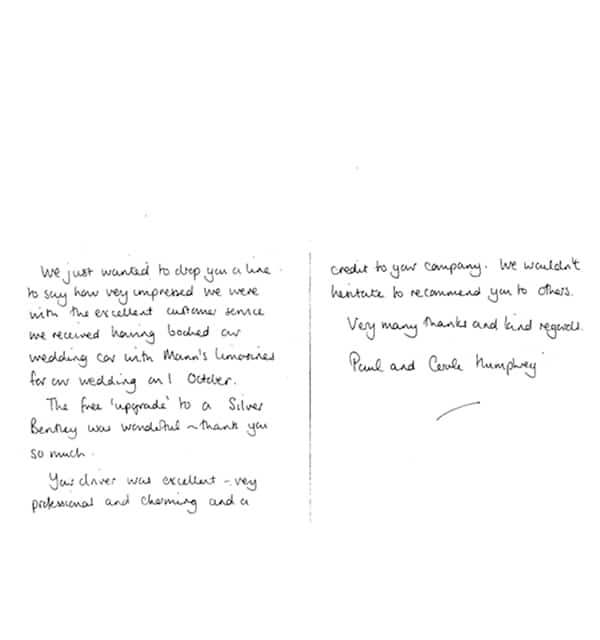 We just wanted to drop you a line
to say how very impressed we were
with the excellent customer service
we received having booked our
wedding car with Mann's limosines
for our wedding on 1 October.
The free 'upgrade' to a Silver
Bentley was wonderful – thank you
so much.
Your driver was excellent – very
professional and charming and a
credit to your company. We wouldn't
hesitate to recommend you to others.
Very many thanks and kind regards.
Paul and Carole Humphrey